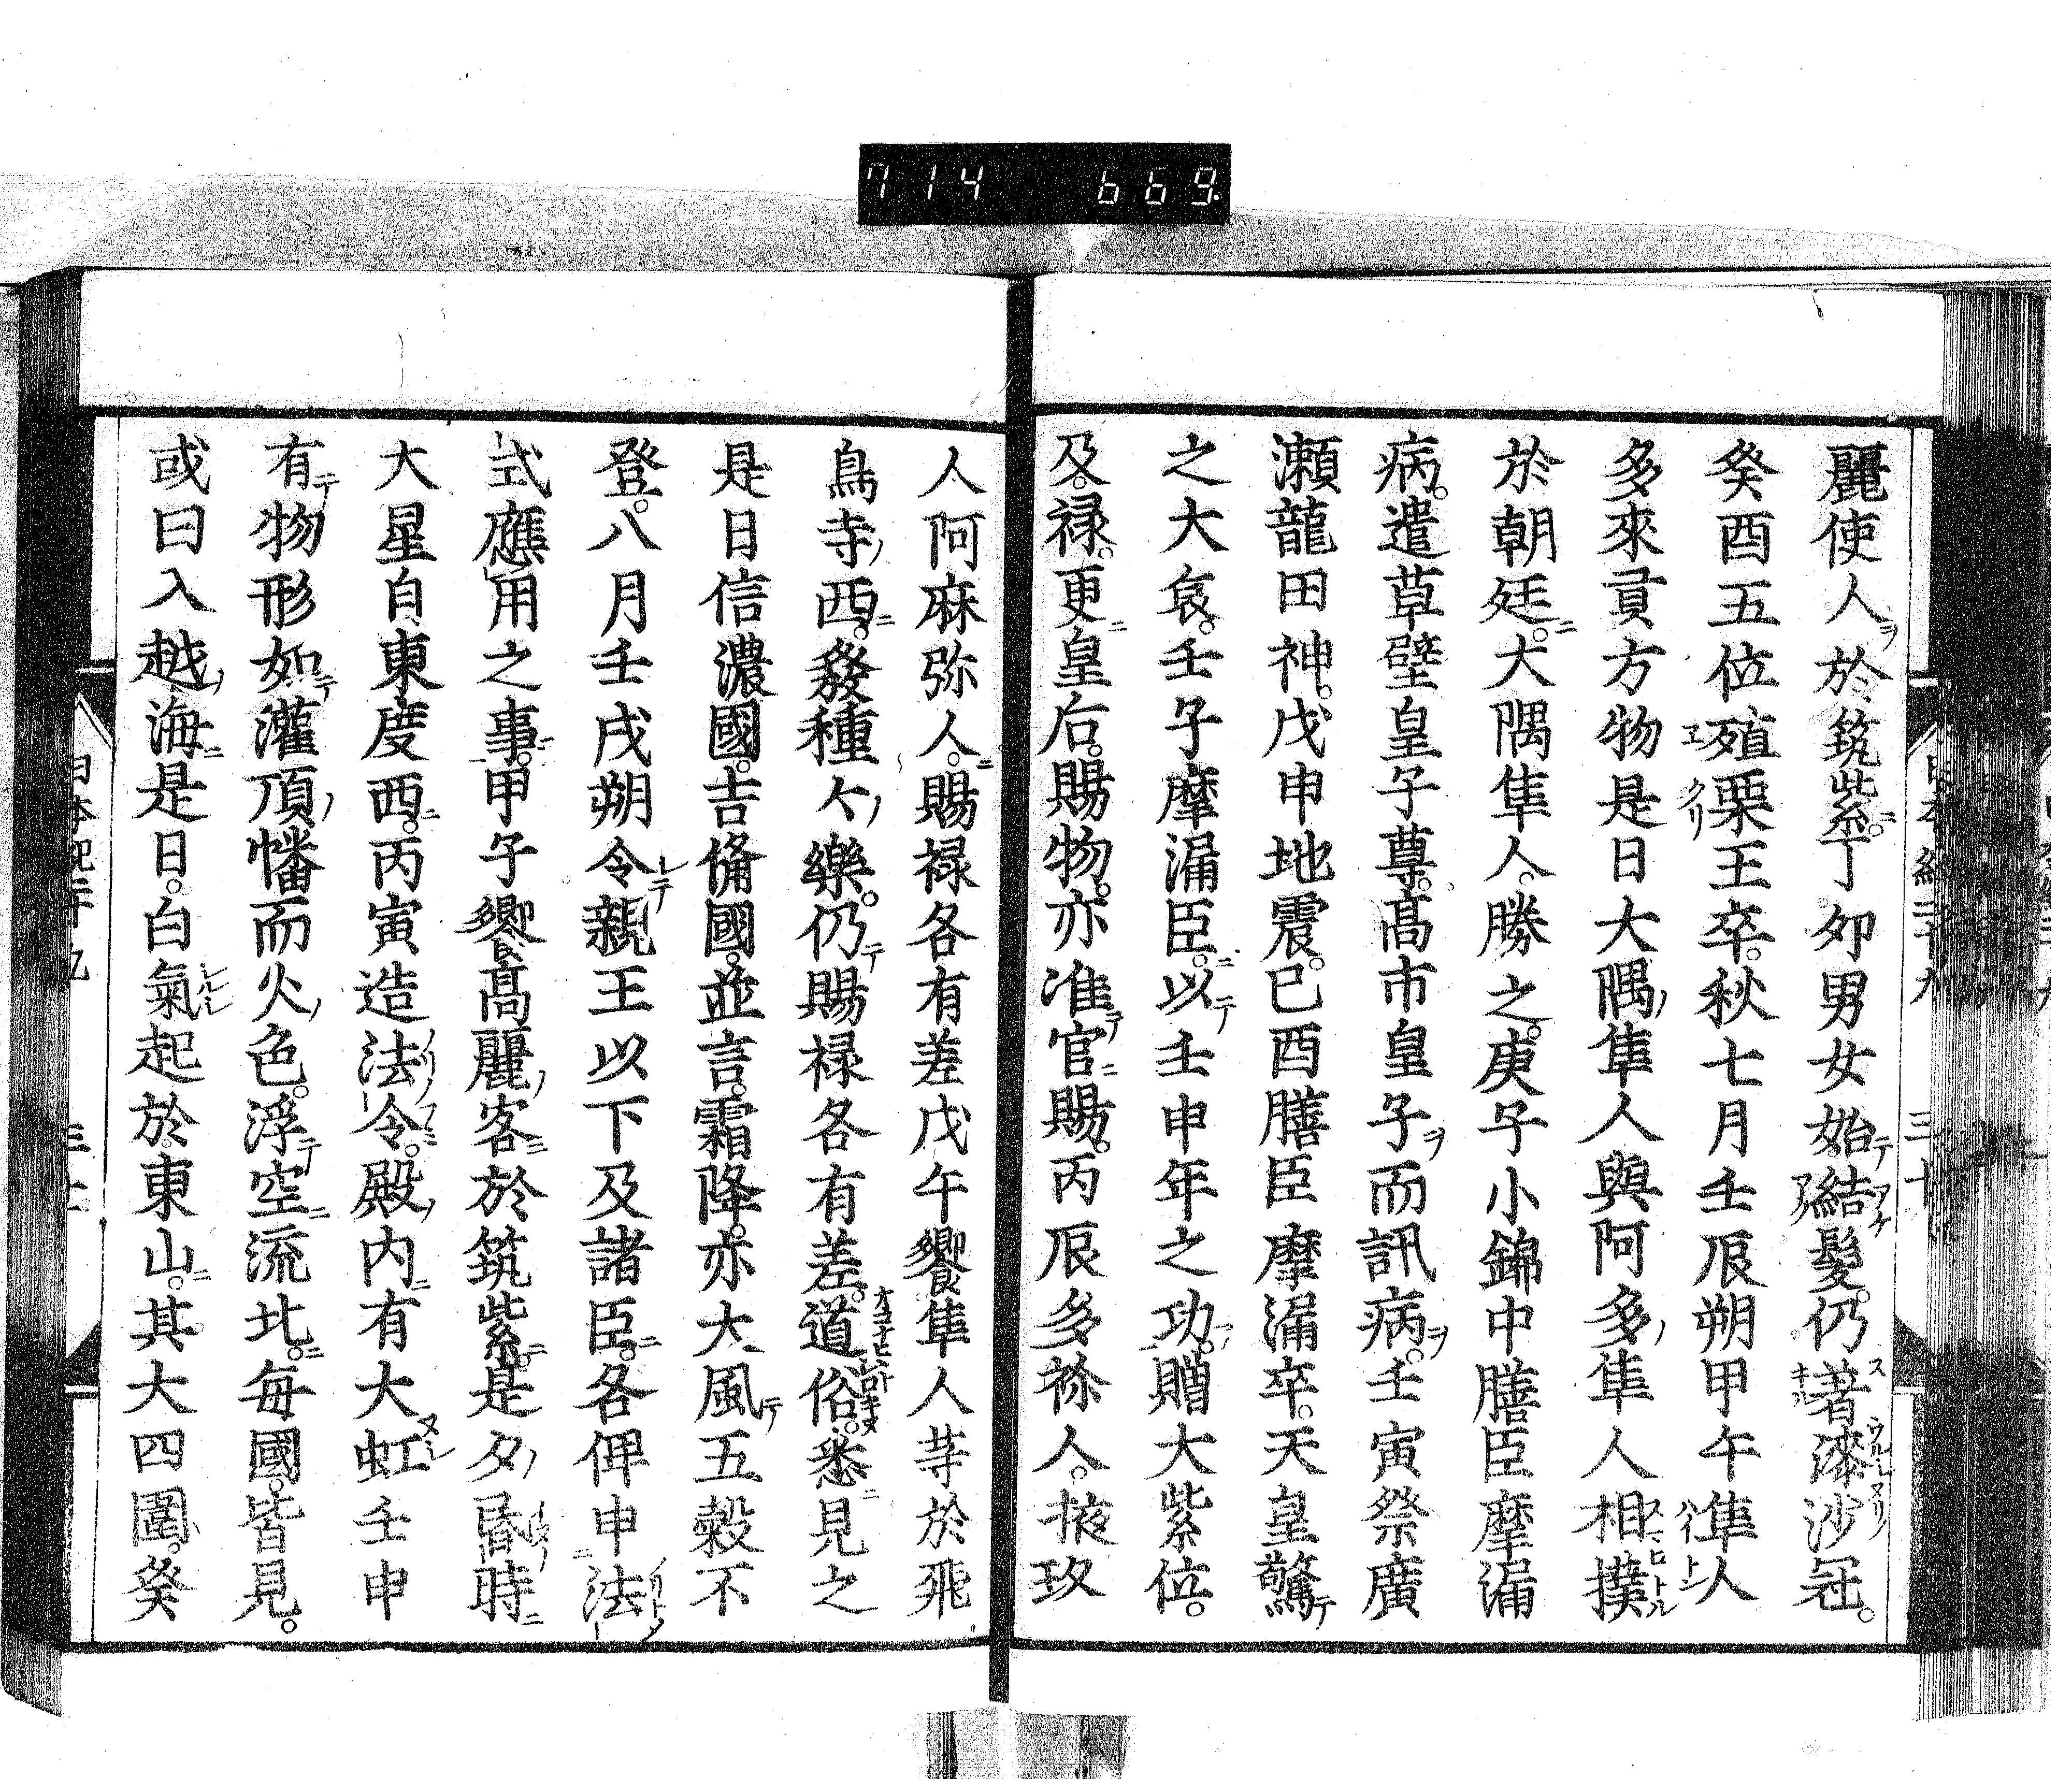 714 669.
麗使人於筑紫丁夘男女始結髮仍著漆沙冠
癸酉五位殖栗王卒秋七月壬辰朔甲午隼人
多來貢方物是日大隅隼人與阿多隼人相撲
於朝廷大隅隼人勝之庚子小錦中膳臣摩漏
病遣草壁皇子尊髙市皇子而訊病壬寅祭廣
瀬龍田神戊申地震己酉膳臣摩漏卒天皇驚
之大哀壬子摩漏臣以壬申年之功贈大紫位
及禄更皇后賜物亦准官賜丙辰多祢人掖玖
人阿麻弥人賜禄各有差戊午饗隼人等於飛
鳥寺西發種々樂仍賜禄各有差道俗悉見之
是日信濃國吉備國並言霜降亦大風五穀不
登八月壬戌朔令親王以下及諸臣各俾申法
式應用之事甲子饗髙麗客於筑紫是夕昬時
大星自東度西丙寅造法令殿内有大虹壬申
有物形如灌頂幡而火色浮空流北毎國皆見
或曰入越海是日白氣起於東山其大四圍癸